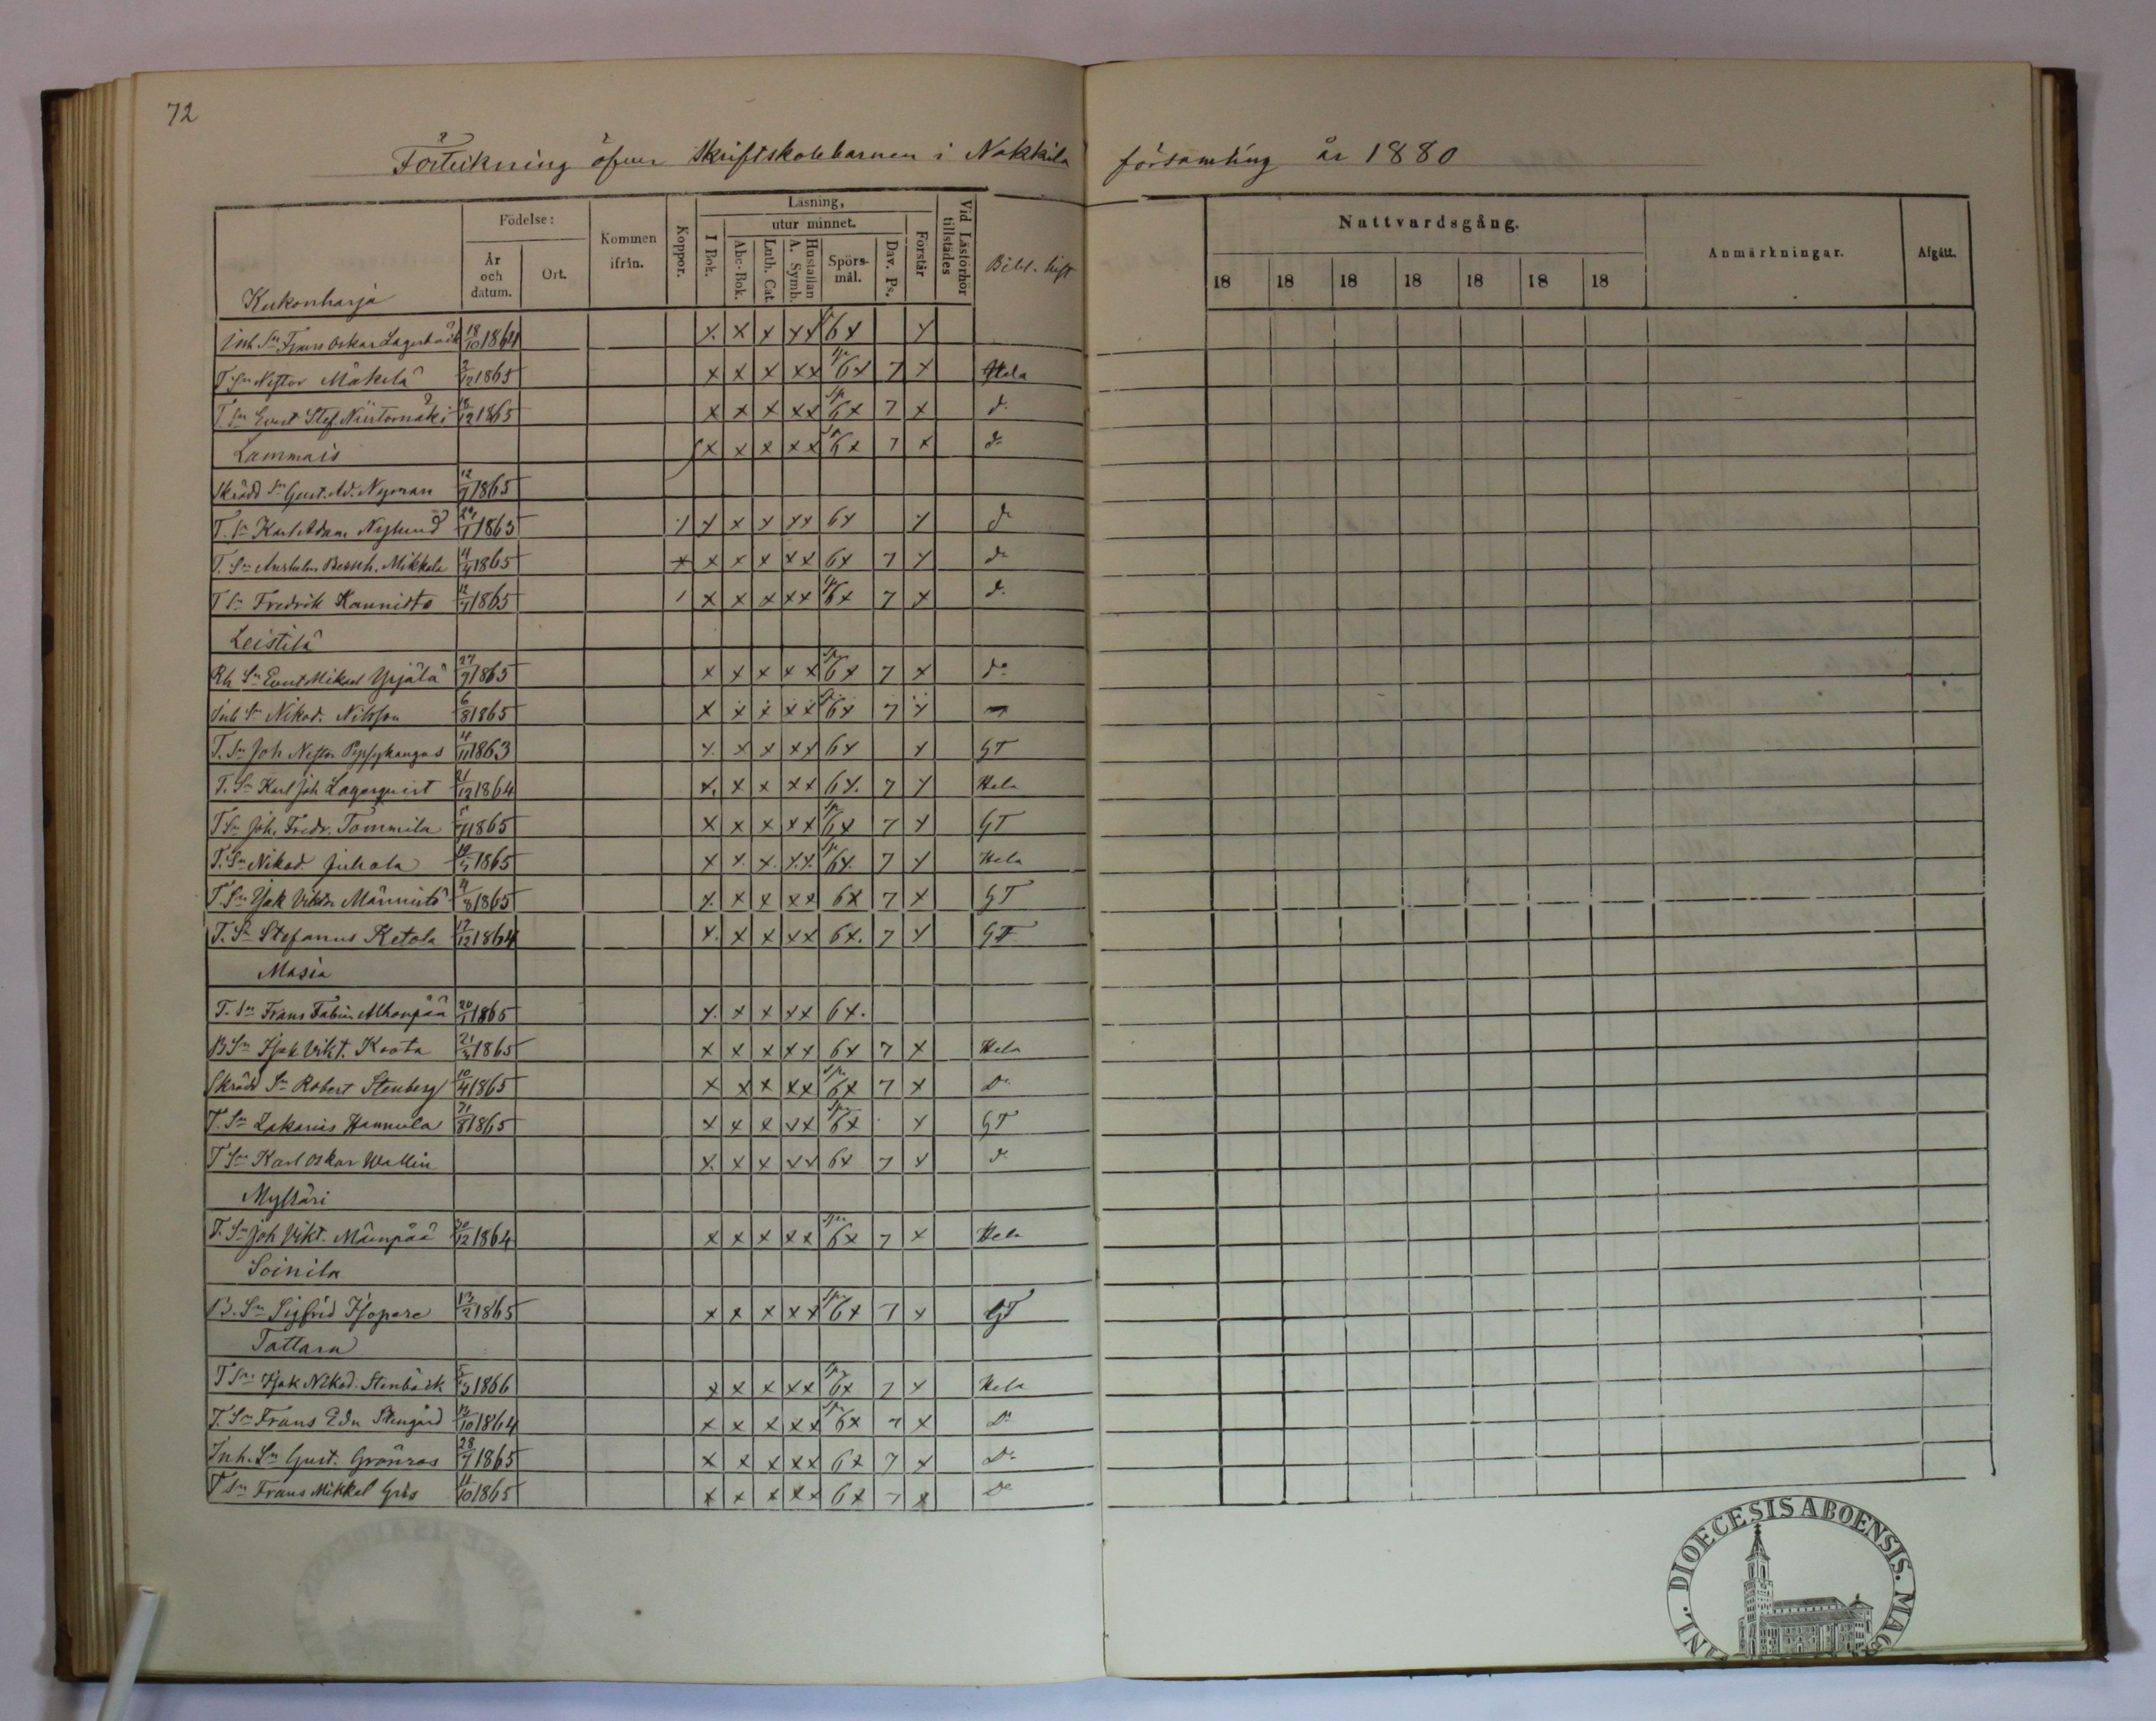 72
Förteckning öfver Skriftskolebarnen i Nakkila församling år 1880
Födelse:
År och datum.
Ort.
Kommen ifrån.
Koppor.
Läsning,
I Bok.
utur minnet.
Abc-Bok.
Luth. Cat.
Hustaflan A. Symb.
Spörsmål.
Dav. Ps.
Förstår
Vid Läsförhör tillstädes
Bibl. hist
Nattvardsgång.
18 18 18 18 18 18 18
Anmärkningar.
Afgått.
Kukonharja
Inh Sn Frans Oskar Lagerbäck 18/10 1864 x x x x x 6x x
T Sn Nestor Mäkelä 2/12 1865 x x x x x 6x 7 x Hela
T. Sn Evert Stef. Niitunmäki 18/12 1865 x x x x x 6x 7 x d:
Lammais x x x x x 6x 7 x d:
Skrädd Sn Gust. Ad. Nyman 12/7 1865
T. Sn Karl Adam Nylund 1863 x x x x x 6x x d:
T. Sn Anshelm Bernh. Mikkola 1865 x x x x x 6x 7 x d:
T Sn Fredrik Kannisto 1865 x x x x x 6x 7 x d:
Leistilä
Rh Sn Evert Mikael Yrjälä 27/9 1865 x x x x x 6x 7 x do
Inh Sn Nikod. Nilsson 6/8 1865 x x x x x 6x 7 x
T. Sn Joh Nestor 4/11 1863 x x x x x 6x x GT
T. Sn Karl Joh Lagerqvist 21/12 1864 x x x x x 6x. 7 x Hela
T Sn Joh. Fredr. Tommila 1865 x x x x x 6x 7 x GT
T. Sn Nikod Juhola 19/5 1865 x x x x x 6x. 7 x Hela
T. Sn Isak Viktor Männistö 4/8 1865 x x x x x 6x 7 x GT
T. Sn Stefanus Ketola 17/12 1864 x x x x x 6x. 7 x GT
Masia
T. Sn Frans Fabian Alhonpää 20/1 1865 x x x x x 6x.
B Sn Isak Vikt. Koota 21/3 1865 x x x x x 6x 7 x Hela
Skrädd Sn Robert Stenberg 10/4 1865 x x x x x 6x 7 x Do
T. Sn Zakarias Hannula 1865 x x x x x 6x x GT
T Sn Karl Oskar Wallin x x x x x 6x 7 x do
Mylläri
T. Sn Joh Vikt. Mäenpää 30/12 1864 x x x x x 6x 7 x Hela
Soinila
B. Sn Sigfrid Isopere 13/2 1865 x x x x x 6x 7 x GT
Tattara
T Sn Isak Nikod. Stenbäck 5/3 1866 x x x x x 6x 7 x Hela
T. Sn Frans Edv Stengård 12/10 1864 x x x x x 6x 7 x Do
Inh. Sn Gust. Grönroos 28/7 1865 x x x x x 6x 7 x Do
T Sn Frans Mikkel Grös 11/10 1865 x x x x x 6x 7 x Do
DIOECESIS ABOENSIS. MAG